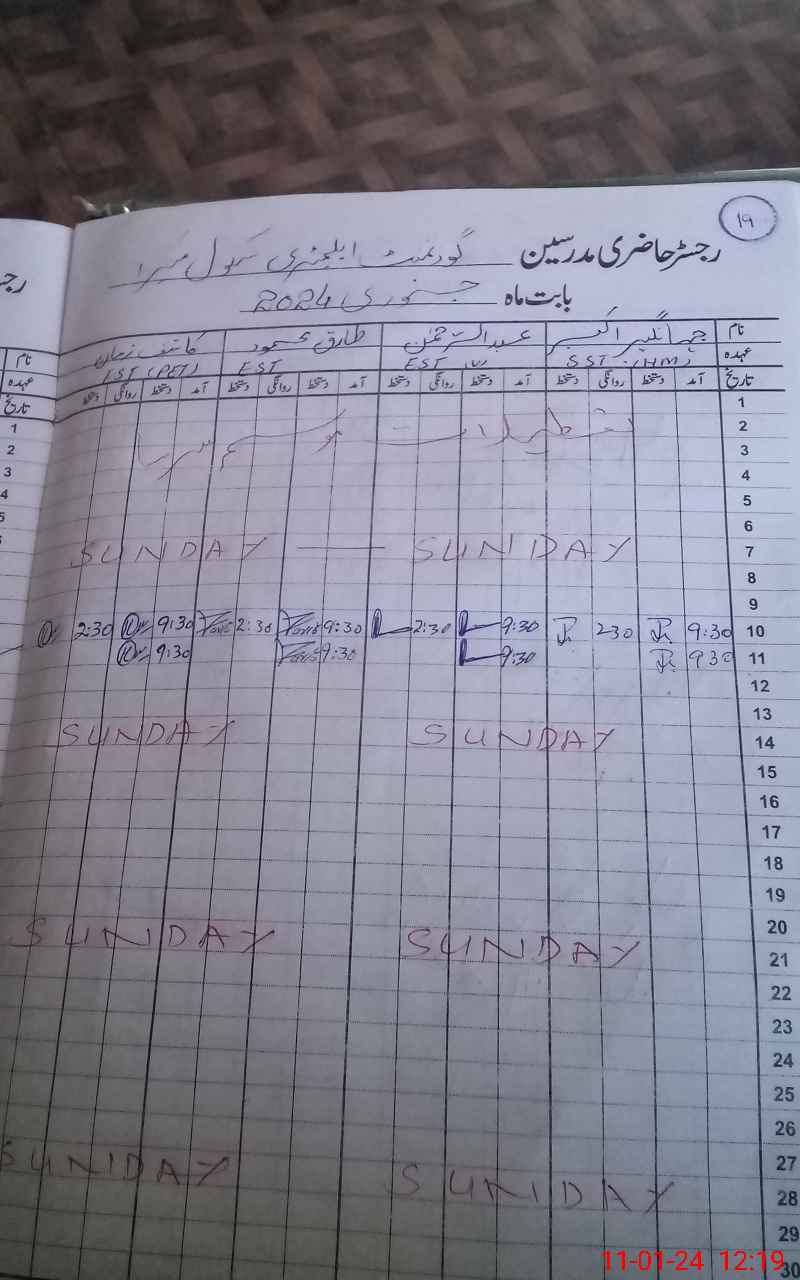 19
رجسٹر حاضری مدرسین گورنمنٹ ایلیمنٹری سکول
بابت ماہ جنوری 2024
نام جہانگیر اکبر عبدالرحمٰن طارق محمود کاشف زمان
عہدہ SST (HM) EST EST EST (PET)
تاریخ آمد دستخط روانگی دستخط آمد دستخط روانگی دستخط آمد دستخط روانگی دستخط آمد دستخط روانگی دستخط
1
2 تعطیلات موسم سرما
3
4
5
6
SUNDAY — SUNDAY 7
8
9
2:30 9:30 2:30 9:30 2:30 9:30 230 9:30 10
9:30 9:30 9:30 930 11
12
13
SUNDAY SUNDAY 14
15
16
17
18
19
20
SUNDAY SUNDAY 21
22
23
24
25
26
27
SUNDAY SUNDAY 28
29
30
11-01-24 12:19
رجـ
نام
عہدہ
تاریخ
1
2
3
4
5